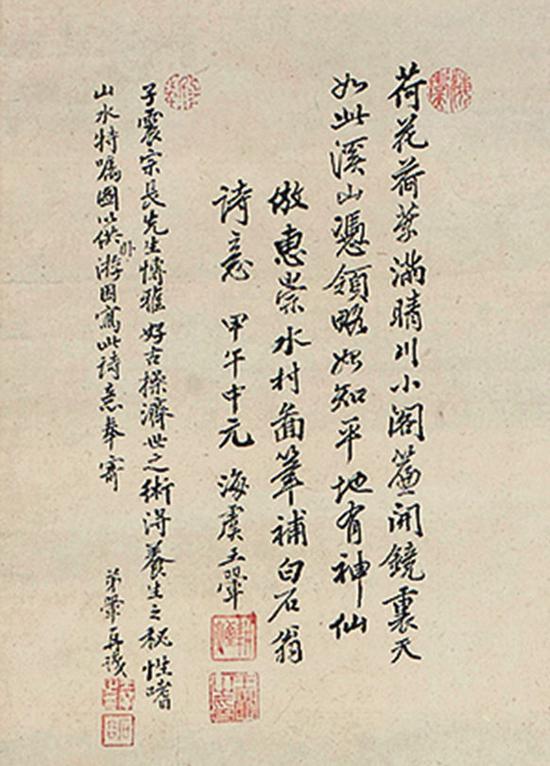 荷花荷葉满晴川小阁簾開鏡裏天
如此溪山憑領略始知平地有神仙
倣惠崇水村圖筆補白石翁
诗意 甲午中元 海虞王翬
子震宗長先生博雅好古操濟世之術得養生之秘性嗜
山水特嘱圖以供卧游因寫此诗意奉寄 弟翬再識